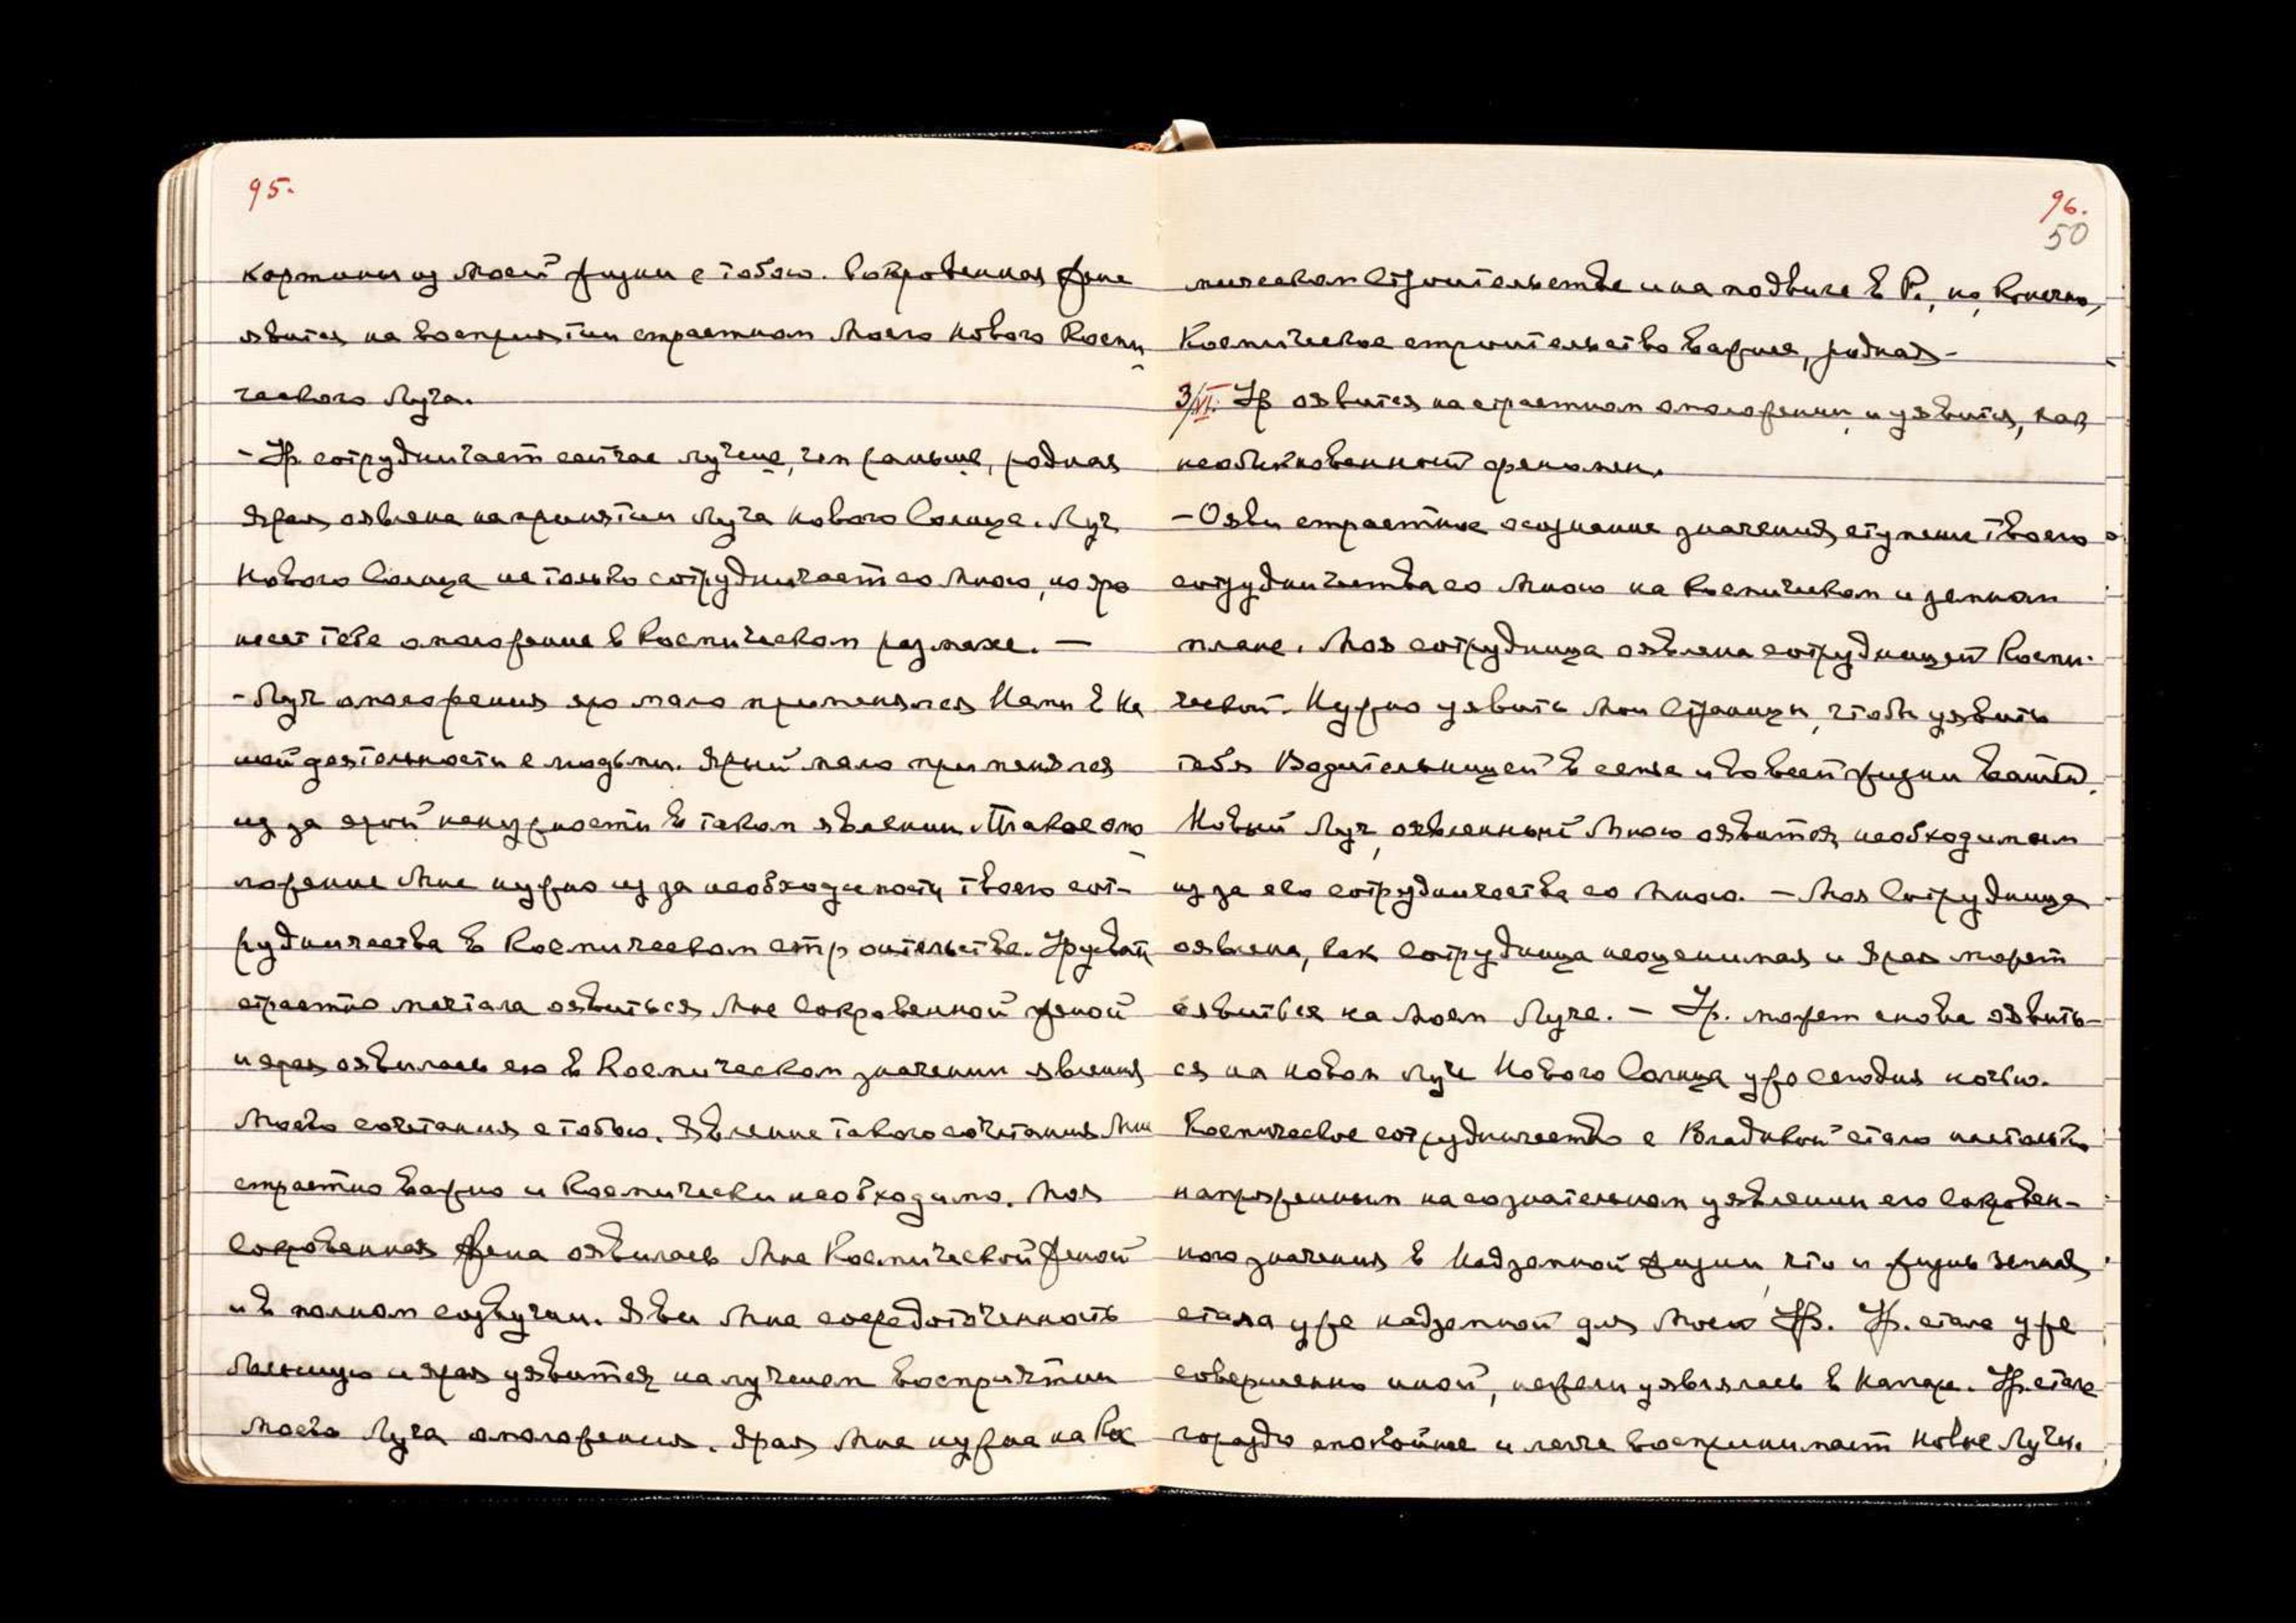 95.
картины из Моей жизни с тобою. Сокровенная жена
явится на восприятии страстном Моего нового Косми
ческого Луча.
- Ур. сотрудничает сейчас лучше, чем раньше, родная
Ярая оявлена на принятии Луча нового Солнца. Луч
Нового Солнца не только сотрудничает со Мною, но яро
несет тебе омоложение в Космическом размахе. —
- Луч омоложения яро мало применялся Нами в На
шей деятельности с людьми. Ярый мало применялся
из за ярой ненужности в таком явлении. Такое омо
ложение Мне нужно из за необходимости твоего сот-
рудничества в Космическом строительстве. Урусвати
страстно мечтала оявиться Мне Сокровенной женой
и ярая оявилась ею в Космическом значении явления
Моего сочетания с тобою. Явление такого сочетания Мне
страстно важно и Космически необходимо. Моя
Сокровенная Жена оявилась Мне Космической Женой
и в полном созвучии. Яви Мне сосредоточенность
большую и ярая уявится на лучшем восприятии
Моего Луча омоложения. Ярая Мне нужна на Кос
96.
50
мическом Строительстве и на подвиге в Р., но, Конечно,
Космическое строительство важнее, родная -
3/VI. Ур оявится на страстном омоложении и уявится, как
необыкновенный феномен.
- Ояви страстное осознание значения, ступени твоего
сотрудничества со Мною на Космическом и земном
плане. Моя сотрудница оявлена сотрудницей Косми-
ческой. Нужно уявить Мои Страницы, чтобы уявить
тебя Водительницей в семье и во всей жизни вашей.
Новый Луч, оявленный Мною оявится, необходимым
из за его сотрудничества со Мною. — Моя Сотрудница
оявлена, как Сотрудница неоценимая и Ярая может
оявиться на Моем Луче. — Ур. может снова оявить-
ся на новом луче Нового Солнца уже сегодня ночью.
Космическое сотрудничество с Владыкой стало настолько
напряженным на сознательном уявлении его Сокровен-
ного значения в Надземной жизни, что и жизнь земная
стала уже надземной для Моей Ур. Ур. стала уже
совершенно иной, нежели уявлялась в Калаце. Ур. стала
гораздо спокойнее и легче воспринимает новые Лучи.